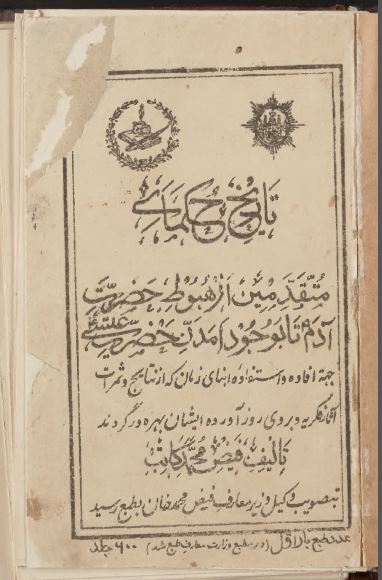 تاریخ حکمای
متقدمین از هبوط حضرت
آدم تا بوجود آمدن حضرت عیسی
جهة افاده و استفاده ابنای زمان که از نتایج و ثمرات
آثار فکریه و بروی روز آورده ایشان بهره ور گردند
تألیف فیض محمد کاتب
بتصویب وکیل وزیر معارف فیض محمد خان بطبع رسید
عدد طبع بار اول (در مطبع وزارت معارف طبع شد) ۶۰۰ جلد